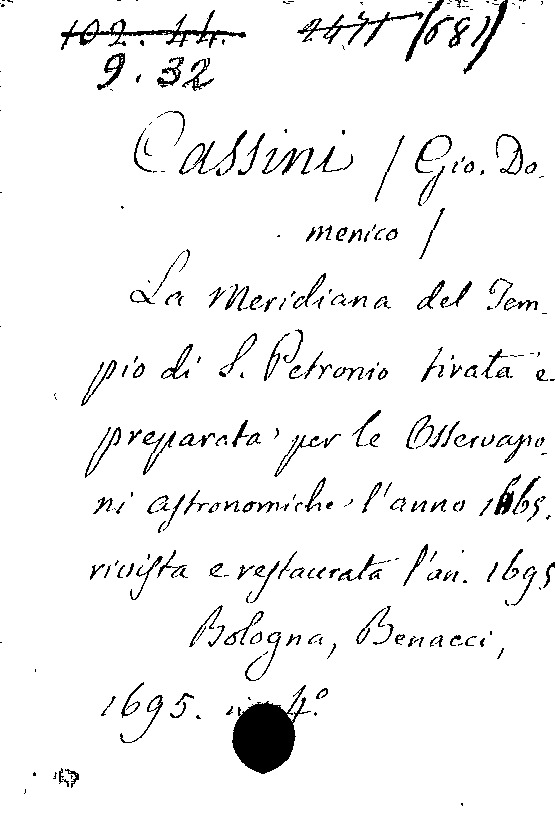 102. 44. 2471 (681)
9. 32
Cassini / Gio. Do-
menico /
La Meridiana del Tem-
pio di S. Petronio tirata e
preparata per le Osservazio-
ni astronomiche l'anno 1665.
rivista e restaurata l'an. 1695
Bologna, Benacci,
1695. in 4.º